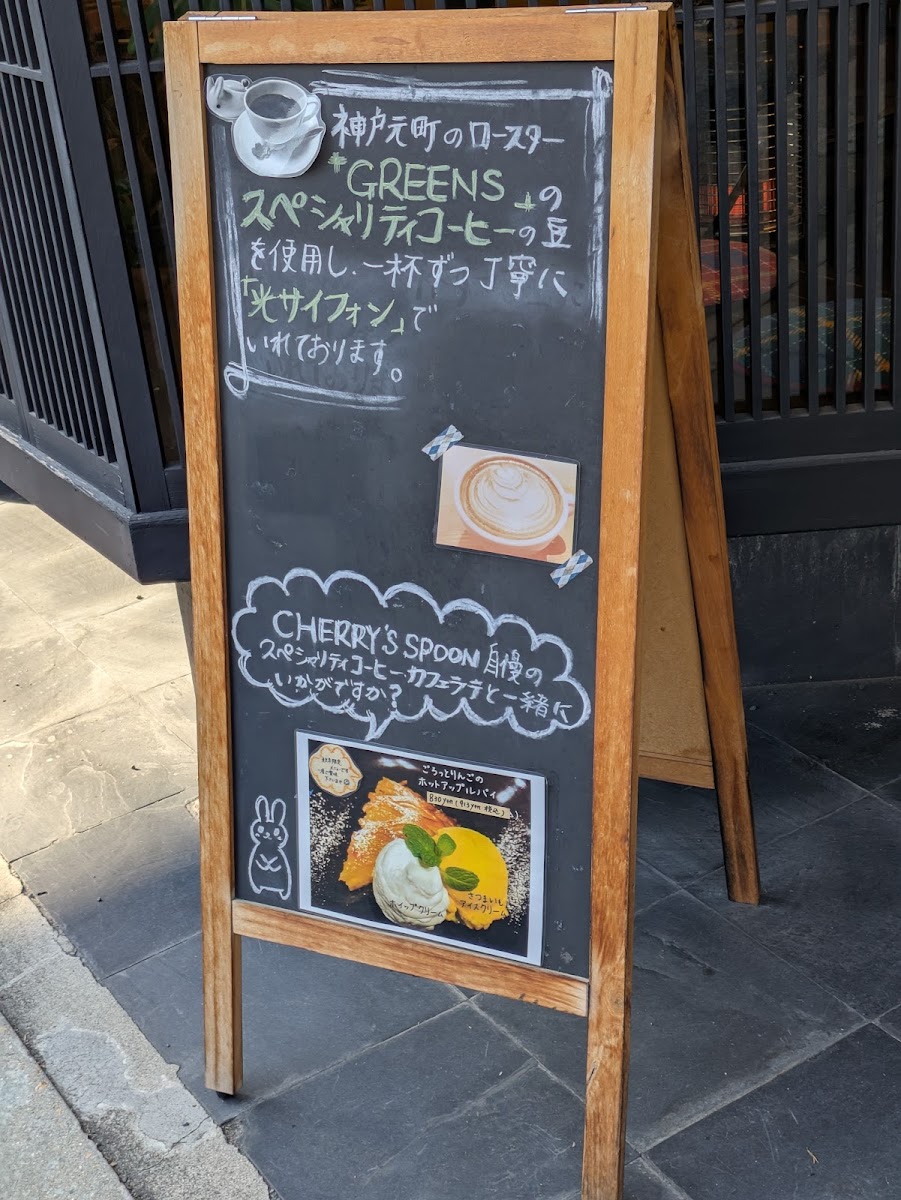 神戸元町のロースター
『GREENS』の
スペシャリティコーヒーの豆
を使用し、一杯ずつ丁寧に
「光サイフォン」で
いれております。
CHERRY'S SPOON 自慢の
スペシャリティコーヒー・カフェラテと一緒に
いかがですか？
ごろっとりんごの
ホットアップルパイ
830yen (913yen 税込)
ホイップクリーム
さつまいも
アイスクリーム